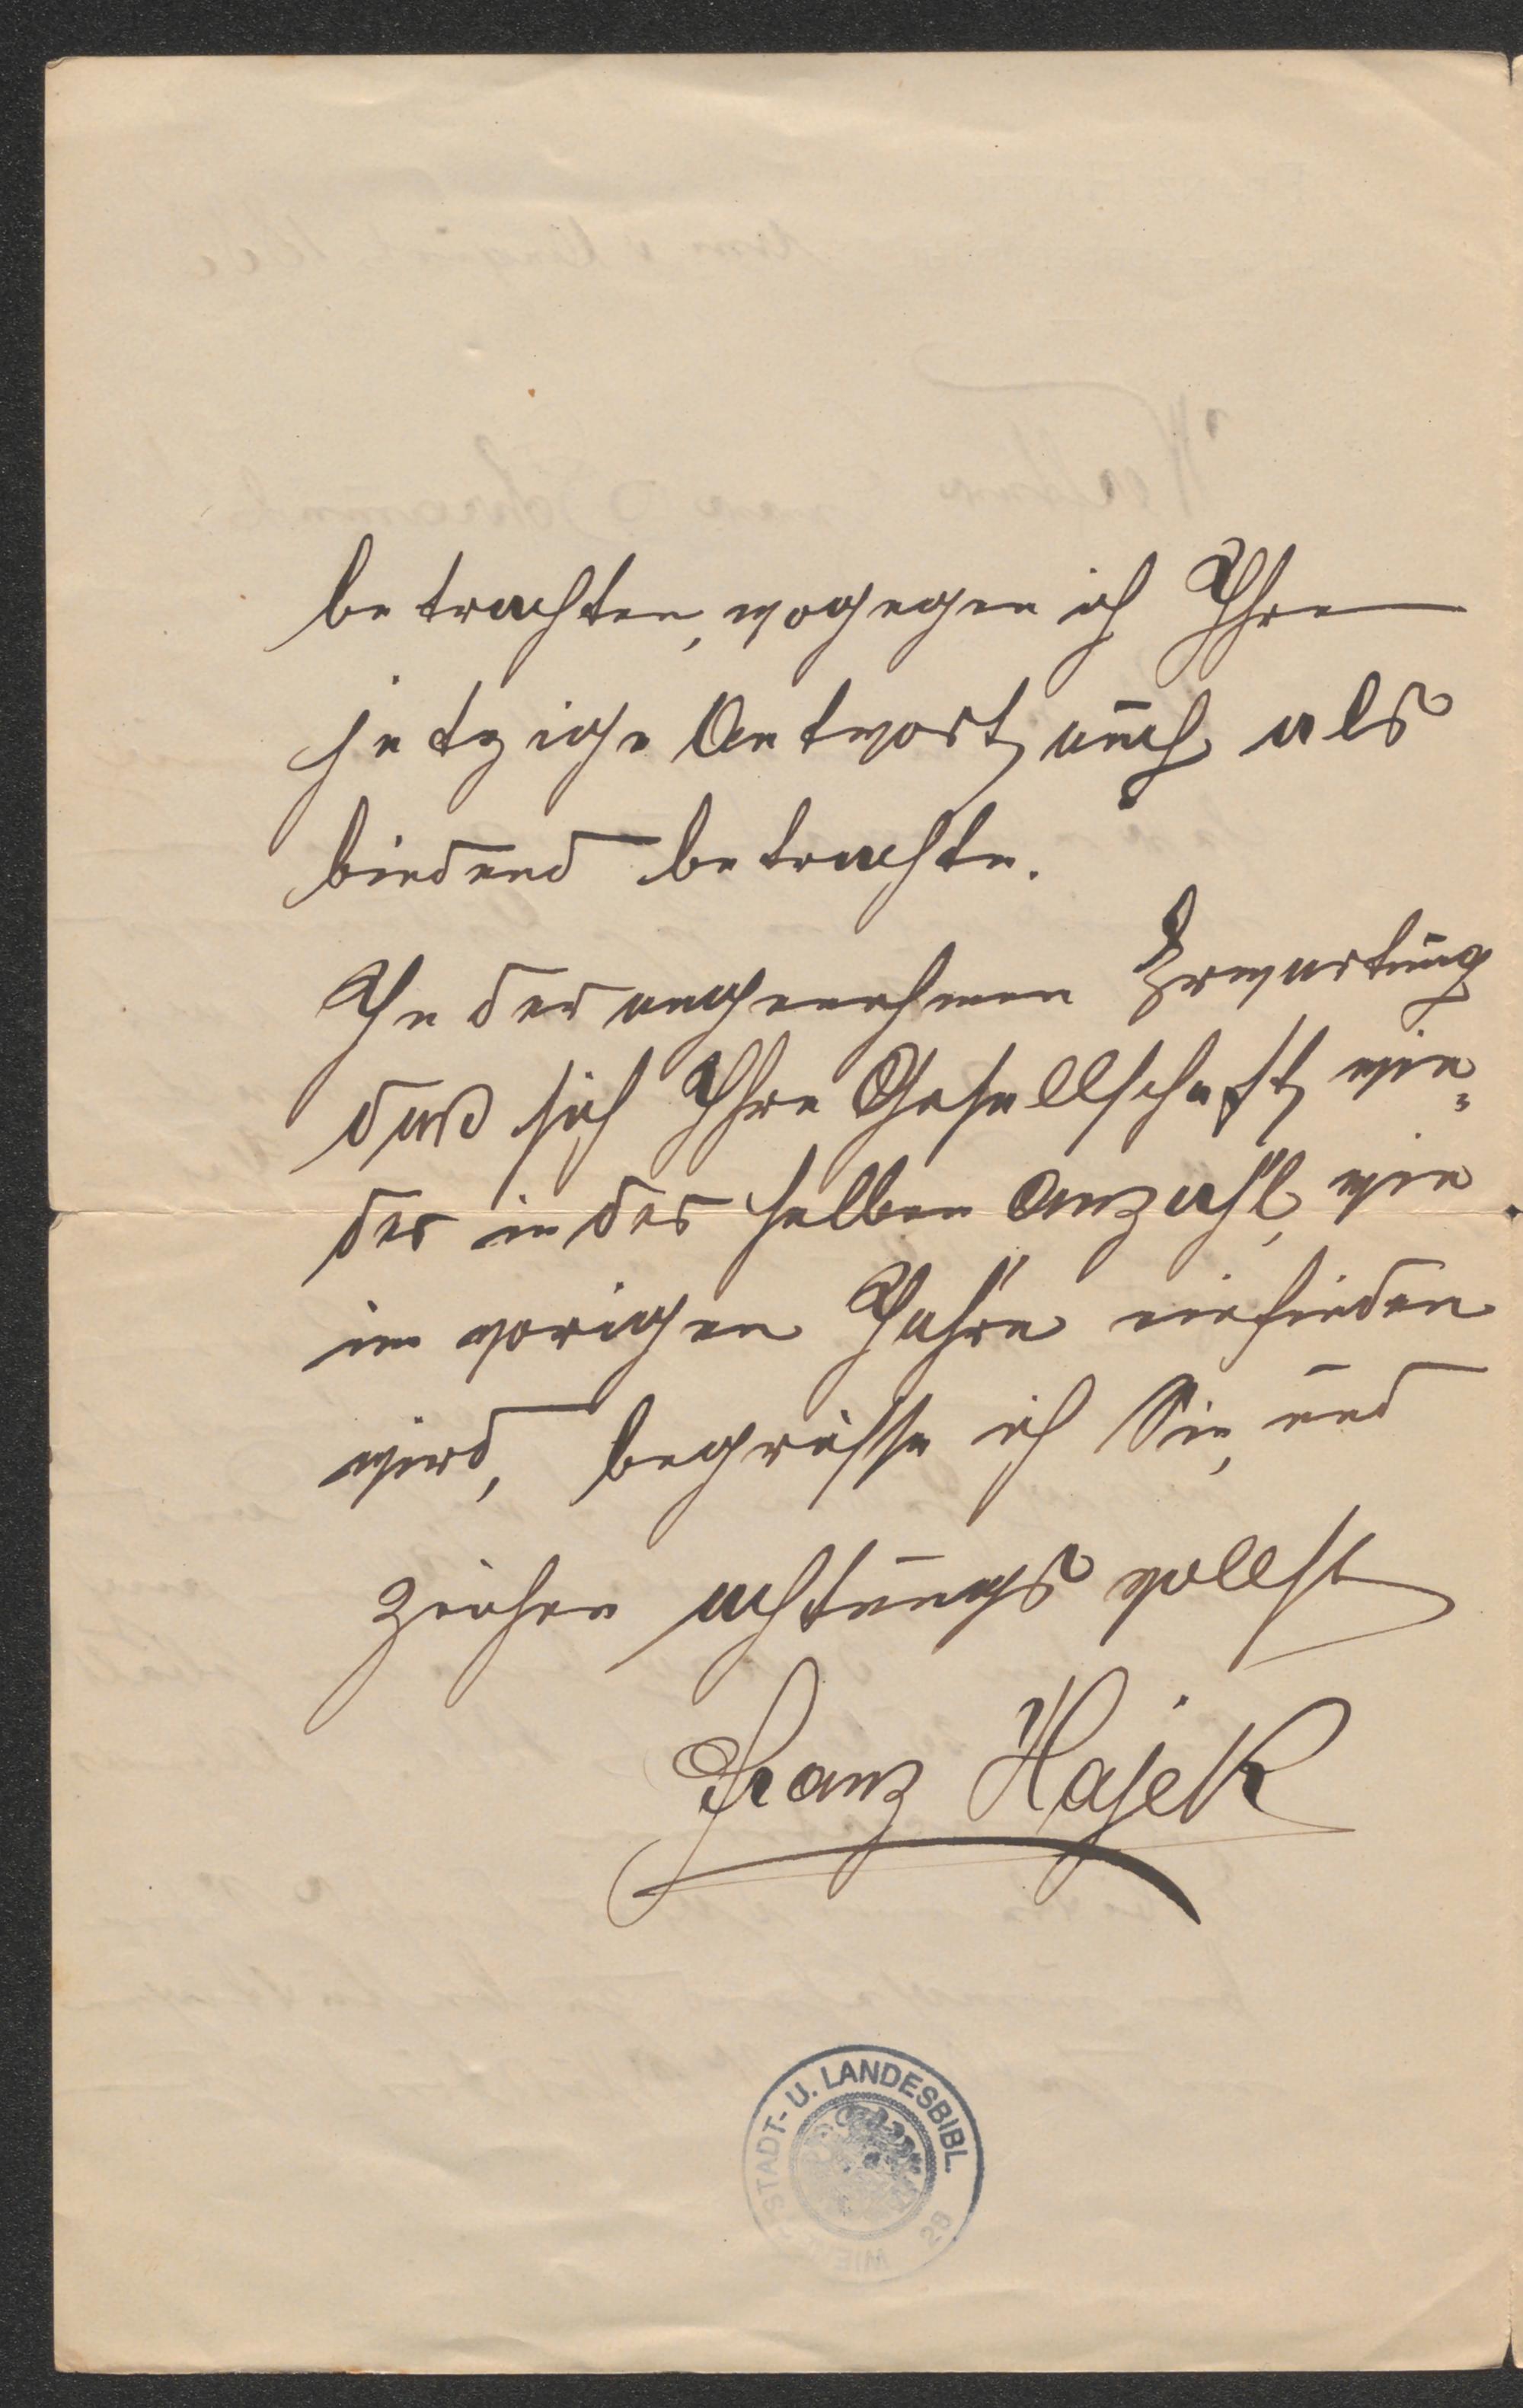 betrachten, wogegen ich Ihre
jetzige Antwort auch als
bindend betrachte.
In der angenehmen Erwartung
daß sich Ihre Gesellschaft wie=
der in der selben Anzahl, wie
im vorigen Jahre einfinden
wird, begrüsse ich Sie, und
zeichne achtungsvollst
Franz Hajek
STADT- U. LANDESBIBL.
WIEN 28